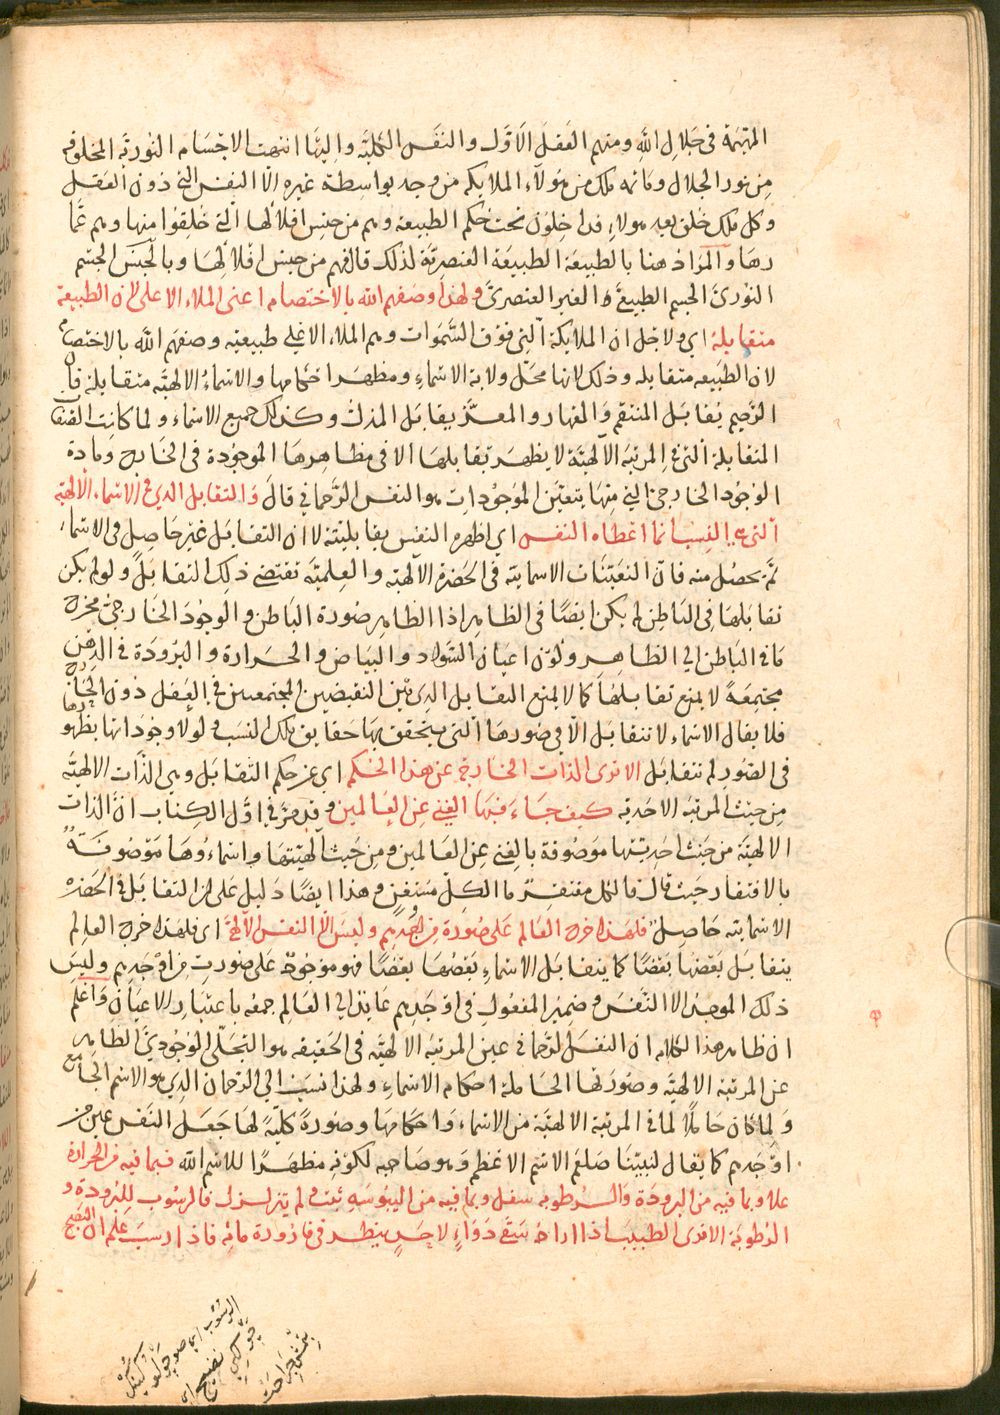 المهيمة في جلال الله ومنهم العقل الاول والنفس الكلية واليها انتهت الاجسام النورية المخلوقة
من نور الجلال وما ثمه ملك من هؤلاء الملايكه من وجد بواسطة غيره الا النفس التي دون العقل
وكل ملك خلق بعد هولاء فداخلون تحت حكم الطبيعة وهم من جنس افلاكها التي خلقوا منها وهم عما
رها والمراد هنا بالطبيعة الطبيعة العنصرية لذلك قال فهم من جنس افلاكها وبالجسم
النوري الجسم الطبيعي الغير العنصري ولهذا وصفهم الله بالاختصام اعني الملاء الاعلى لان الطبيعة
متقابلة اي ولاجل ان الملايكة التي فوق السموات وهم الملاء الاعلى طبيعيه وصفهم الله بالاختصام
لان الطبيعه متقابله وذلك لانها محل ولاية الاسماء ومظهر احكامها والاسماء الالهيه متقابلة فان
الرحيم يقابل المنتقم والقهار والمعز يقابل المذل وكذلك جميع الاسماء ولما كانت الصفات
المتقابلة التي في المرتبه الالهية لا يظهر تقابلها الا في مظاهرها الموجودة في الخارج ومادة
الوجود الخارجي التي منها يتعين الموجودات هو النفس الرحماني قال والتقابل الذي في الاسماء الالهية
التي هي النسب انما اعطاه النفس اي اظهره النفس بقابليته لا ان التقابل غير حاصل في الاسماء
ثم يحصل منه فان التعينات الاسمائيه في الحضرة الالهية والعلمية تقتضي ذلك التقابل ولو لم يكن
تقابلها في الباطن لم يكن ايضا في الظاهر اذ الظاهر صورة الباطن والوجود الخارجي مخرج
ما في الباطن الى الظاهر وكون اعيان السواد والبياض والحرارة والبرودة في الذهن
مجتمعة لا يمنع تقابلها كما لا يمنع التقابل الذي بين النقيضين المجتمعين في العقل دون الخارج
فلا يقال الاسماء لا تتقابل الا في صورها التي يتحقق بها حقايق تلك النسب ولولا وجوداتها بظهورها
في الصور لم تتقابل الا ترى الذات الخارجة عن هذا الحكم اي عن حكم التقابل وهي الذات الالهية
من حيث المرتبه الاحدية كيف جاء فيها الغني عن العالمين وقد مر في اول الكتاب ان الذات
الالهية من حيث احديتها موصوفة بالغنى عن العالمين ومن حيث الهيتها واسماءوها موصوفة
بالافتقار حيث قال فالكل مفتقر ما الكل مستغن وهذا ايضا دليل على ان التقابل في الحضرة
الاسمائيه حاصل فلهذا خرج العالم على صورة من اوجدهم وليس الا النفس الالهي اي فلهذا خرج العالم
يتقابل بعضها بعضا كما يتقابل الاسماء بعضها بعضا فهو موجود على صورة من اوجدهم وليس
ذلك الموجد الا النفس وضمير المفعول في اوجدهم عايد الى العالم جمعه باعتبار الاعيان واعلم
ان ظاهر هذا الكلام ان النفس الرحماني عين المرتبه الالهيه في الحقيقه هو التجلي الوجودي الظاهر
عن المرتبه الالهية وصورتها الحاملة احكام الاسماء ولهذا نسب الى الرحمان الذي هو الاسم الجامع
ولما كان حاملا لما في المرتبة الالهية من الاسماء واحكامها وصورة كلية لها جعل النفس عين من
اوجدهم كما يقال لنبينا صلعم الاسم الاعظم وهو صاحبه لكونه مظهرا للاسم الله فبما فيه من الحرارة
علا وبما فيه من البرودة والرطوبه سفل وبما فيه من اليبوسه ثبت ولم يتزلزل فالرسوب للبرودة و
الرطوبة الا ترى الطبيب اذا اراد سقى دواء لاحد ينظر في قارورة مائه فاذا رسب علم ان النضج
الرسوب اي
نضيج اي